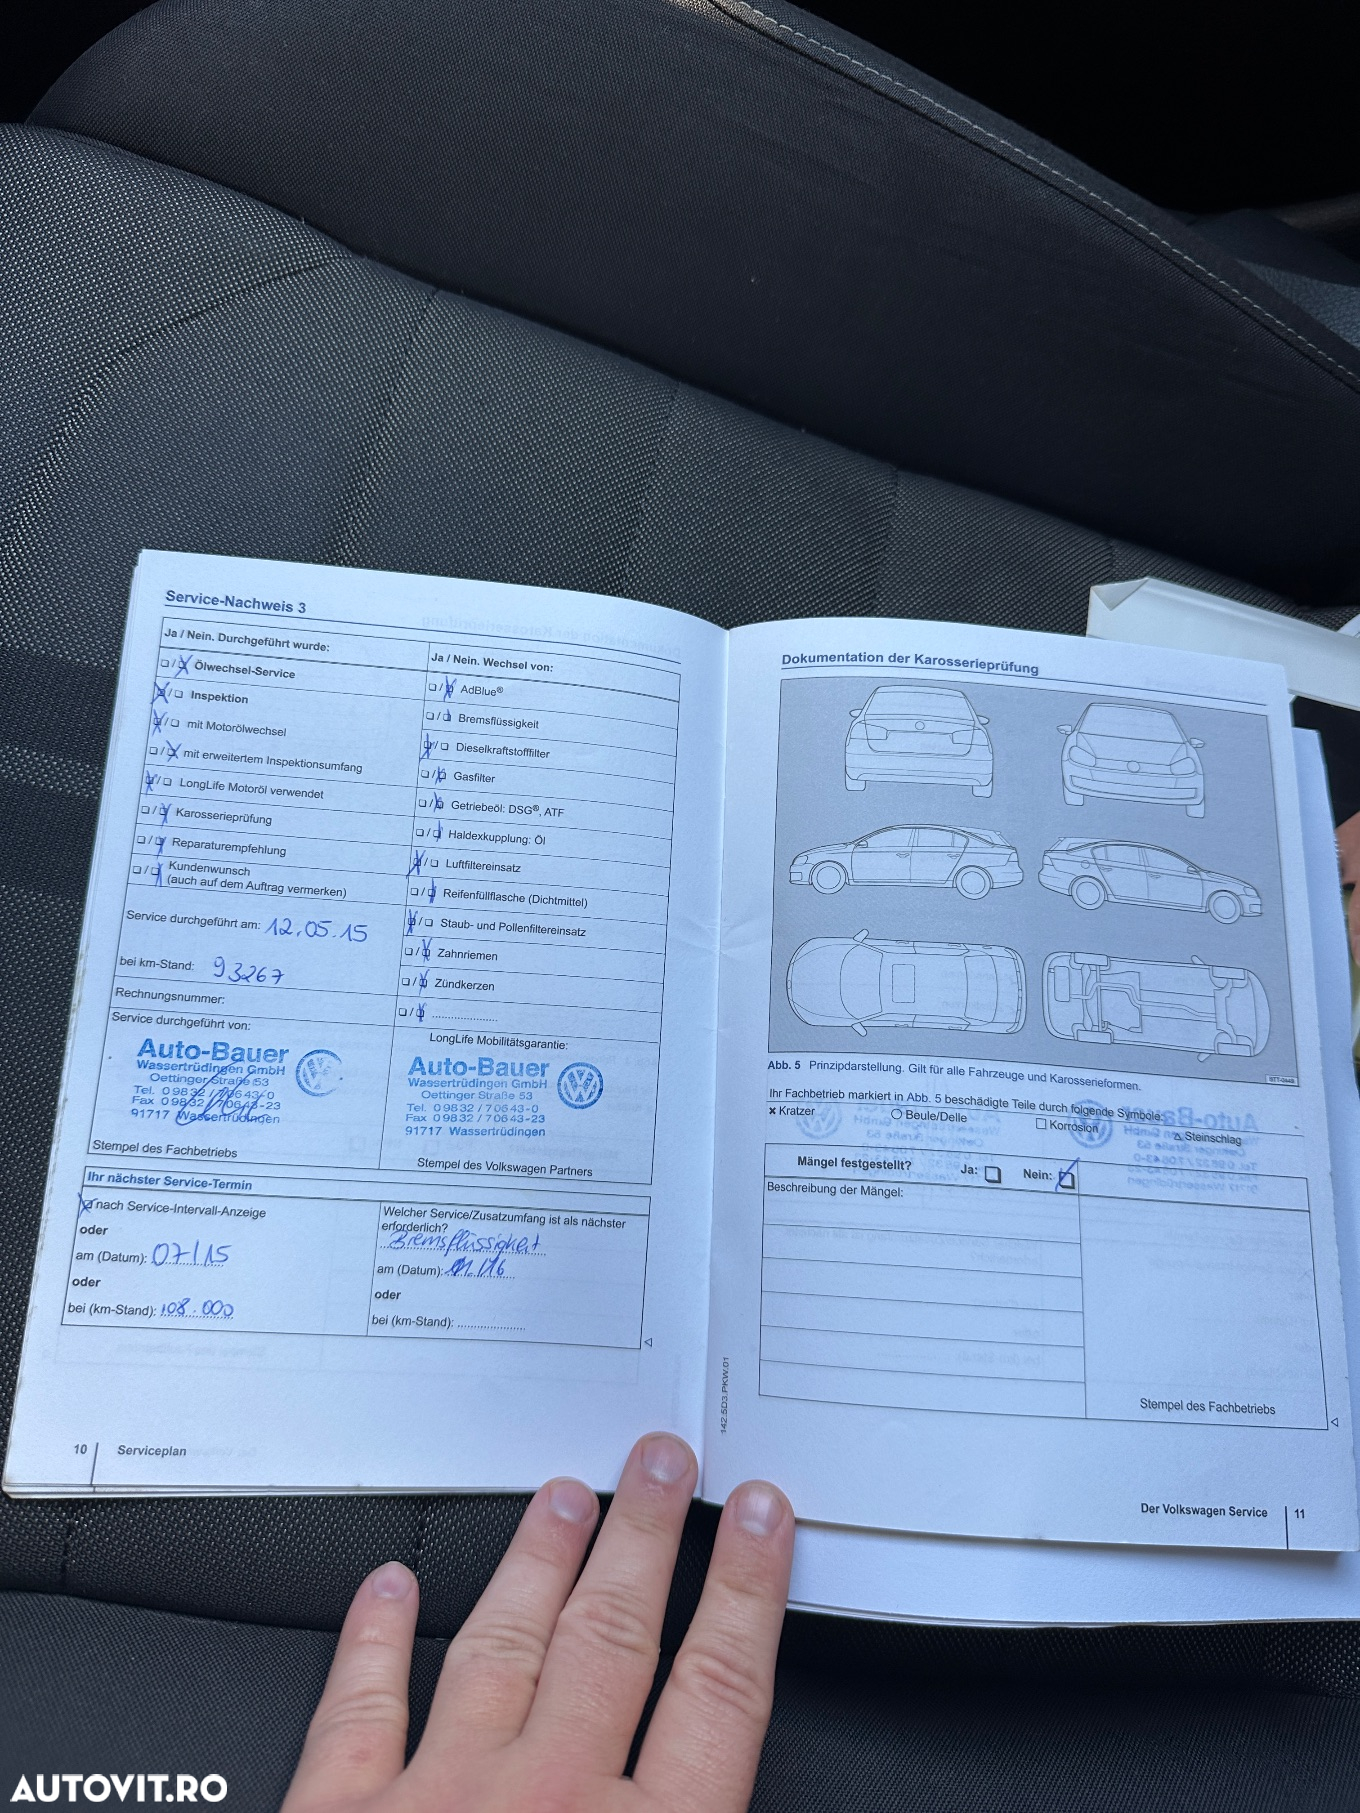 Service-Nachweis 3
Ja / Nein. Durchgeführt wurde:
Ölwechsel-Service
Inspektion
mit Motorölwechsel
mit erweitertem Inspektionsumfang
LongLife Motoröl verwendet
Karosserieprüfung
Reparaturempfehlung
Kundenwunsch
(auch auf dem Auftrag vermerken)
Service durchgeführt am: 12.05.15
bei km-Stand: 93267
Rechnungsnummer:
Service durchgeführt von:
Auto-Bauer
Wassertrüdingen GmbH
Oettinger Straße 53
Tel. 09832/70643-0
Fax 09832/70643-23
91717 Wassertrüdingen
Stempel des Fachbetriebs
Ja / Nein. Wechsel von:
AdBlue®
Bremsflüssigkeit
Dieselkraftstofffilter
Gasfilter
Getriebeöl: DSG®, ATF
Haldexkupplung: Öl
Luftfiltereinsatz
Reifenfüllflasche (Dichtmittel)
Staub- und Pollenfiltereinsatz
Zahnriemen
Zündkerzen
LongLife Mobilitätsgarantie:
Auto-Bauer
Wassertrüdingen GmbH
Oettinger Straße 53
Tel. 09832/70643-0
Fax 09832/70643-23
91717 Wassertrüdingen
Stempel des Volkswagen Partners
Ihr nächster Service-Termin
nach Service-Intervall-Anzeige
oder
am (Datum): 07/15
oder
bei (km-Stand): 108.000
Welcher Service/Zusatzumfang ist als nächster
erforderlich?
Bremsflüssigkeit
am (Datum): 01/16
oder
bei (km-Stand):
10 Serviceplan
142.5D3.PKW.01
Dokumentation der Karosserieprüfung
Abb. 5 Prinzipdarstellung. Gilt für alle Fahrzeuge und Karosserieformen.
Ihr Fachbetrieb markiert in Abb. 5 beschädigte Teile durch folgende Symbole:
Kratzer Beule/Delle Korrosion Steinschlag
Mängel festgestellt? Ja: Nein:
Beschreibung der Mängel:
Stempel des Fachbetriebs
Der Volkswagen Service 11
AUTOVIT.RO